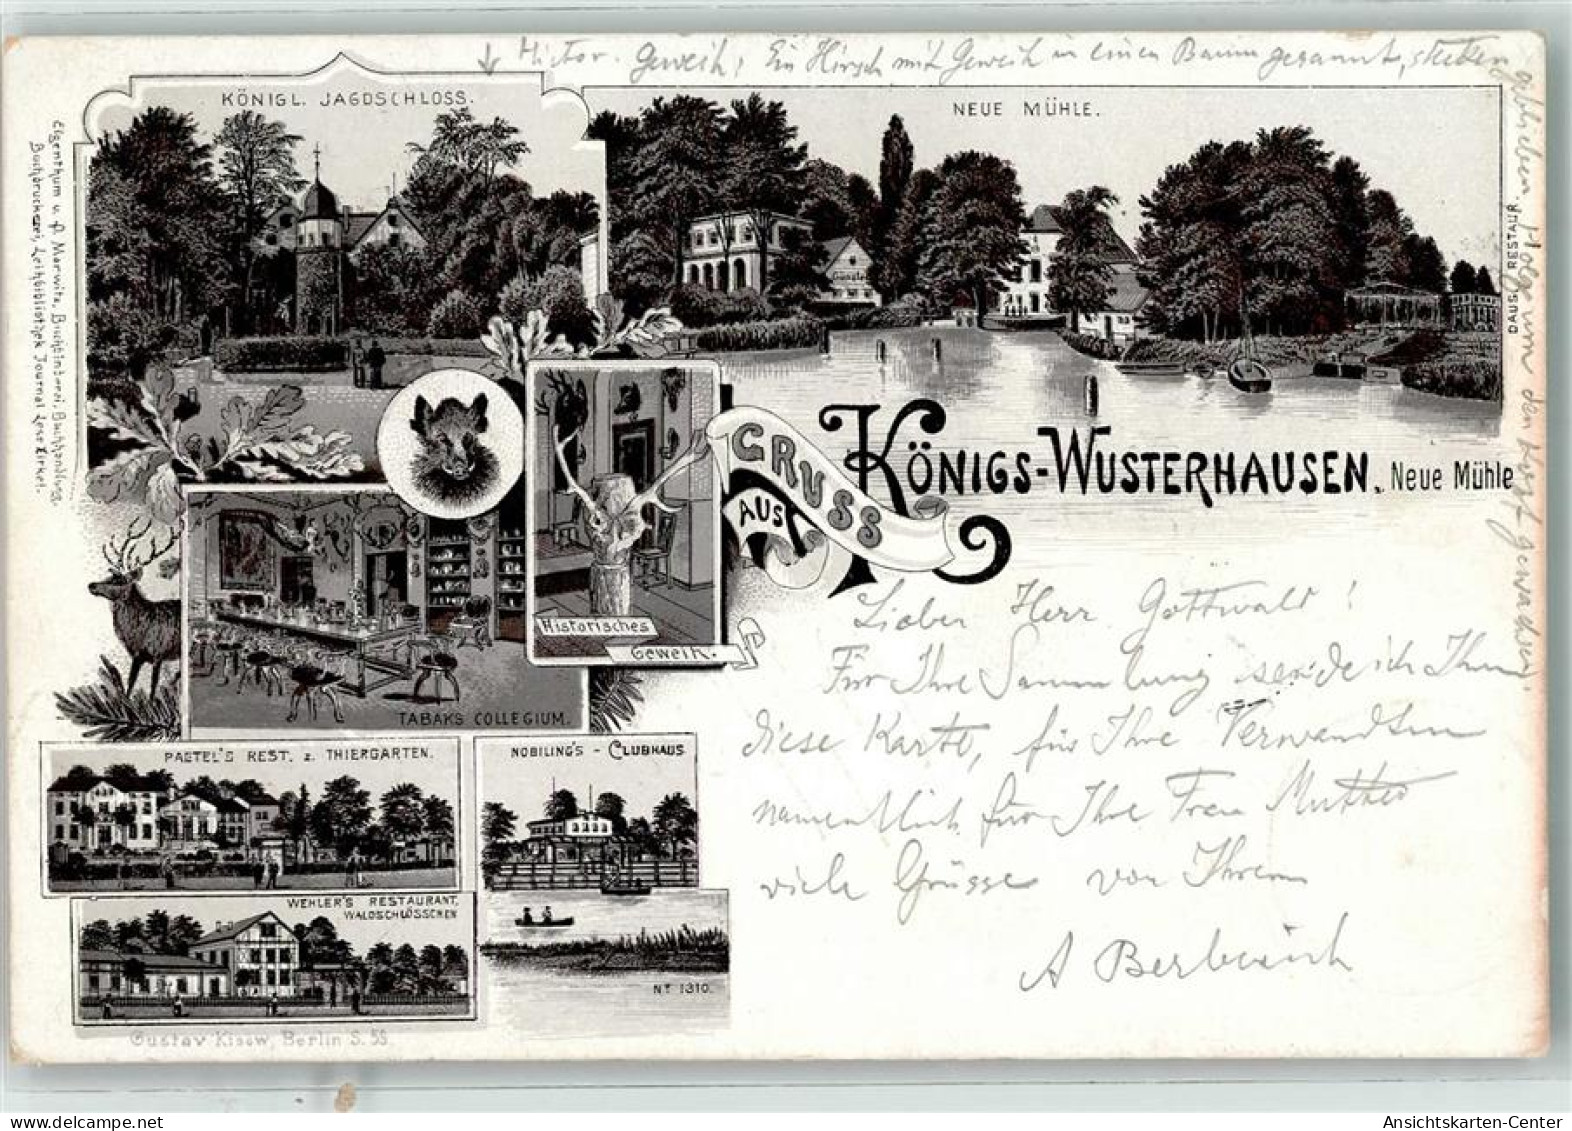 ↓ Histor. Geweih; Ein Hirsch mit Geweih in einen Baum gerannt, stecken
geblieben, Holz um den Kopf gewachsen.
KÖNIGL. JAGDSCHLOSS.
NEUE MÜHLE.
DAUS RESTAUR.
Eigenthum v. P. Marwitz, Buchbinderei, Buchhandlung,
Buchdruckerei, Leihbibliothek Journal Lese Zirkel.
GRUSS
AUS
KÖNIGS-WUSTERHAUSEN. Neue Mühle
Historisches
Geweih.
TABAKS COLLEGIUM.
Lieber Herr Gottwald!
Für Ihre Sammlung sende ich Ihnen
diese Karte, für Ihre Verwandten
namentlich für Ihre Frau Mutter
viele Grüsse von Ihrem
A
PAETEL'S REST. z. THIERGARTEN.
NOBILING'S - CLUBHAUS
WEHLER'S RESTAURANT,
WALDSCHLÖSSCHEN
Nr 1310.
Gustav Kisow, Berlin S. 59.
Ansichtskarten-Center